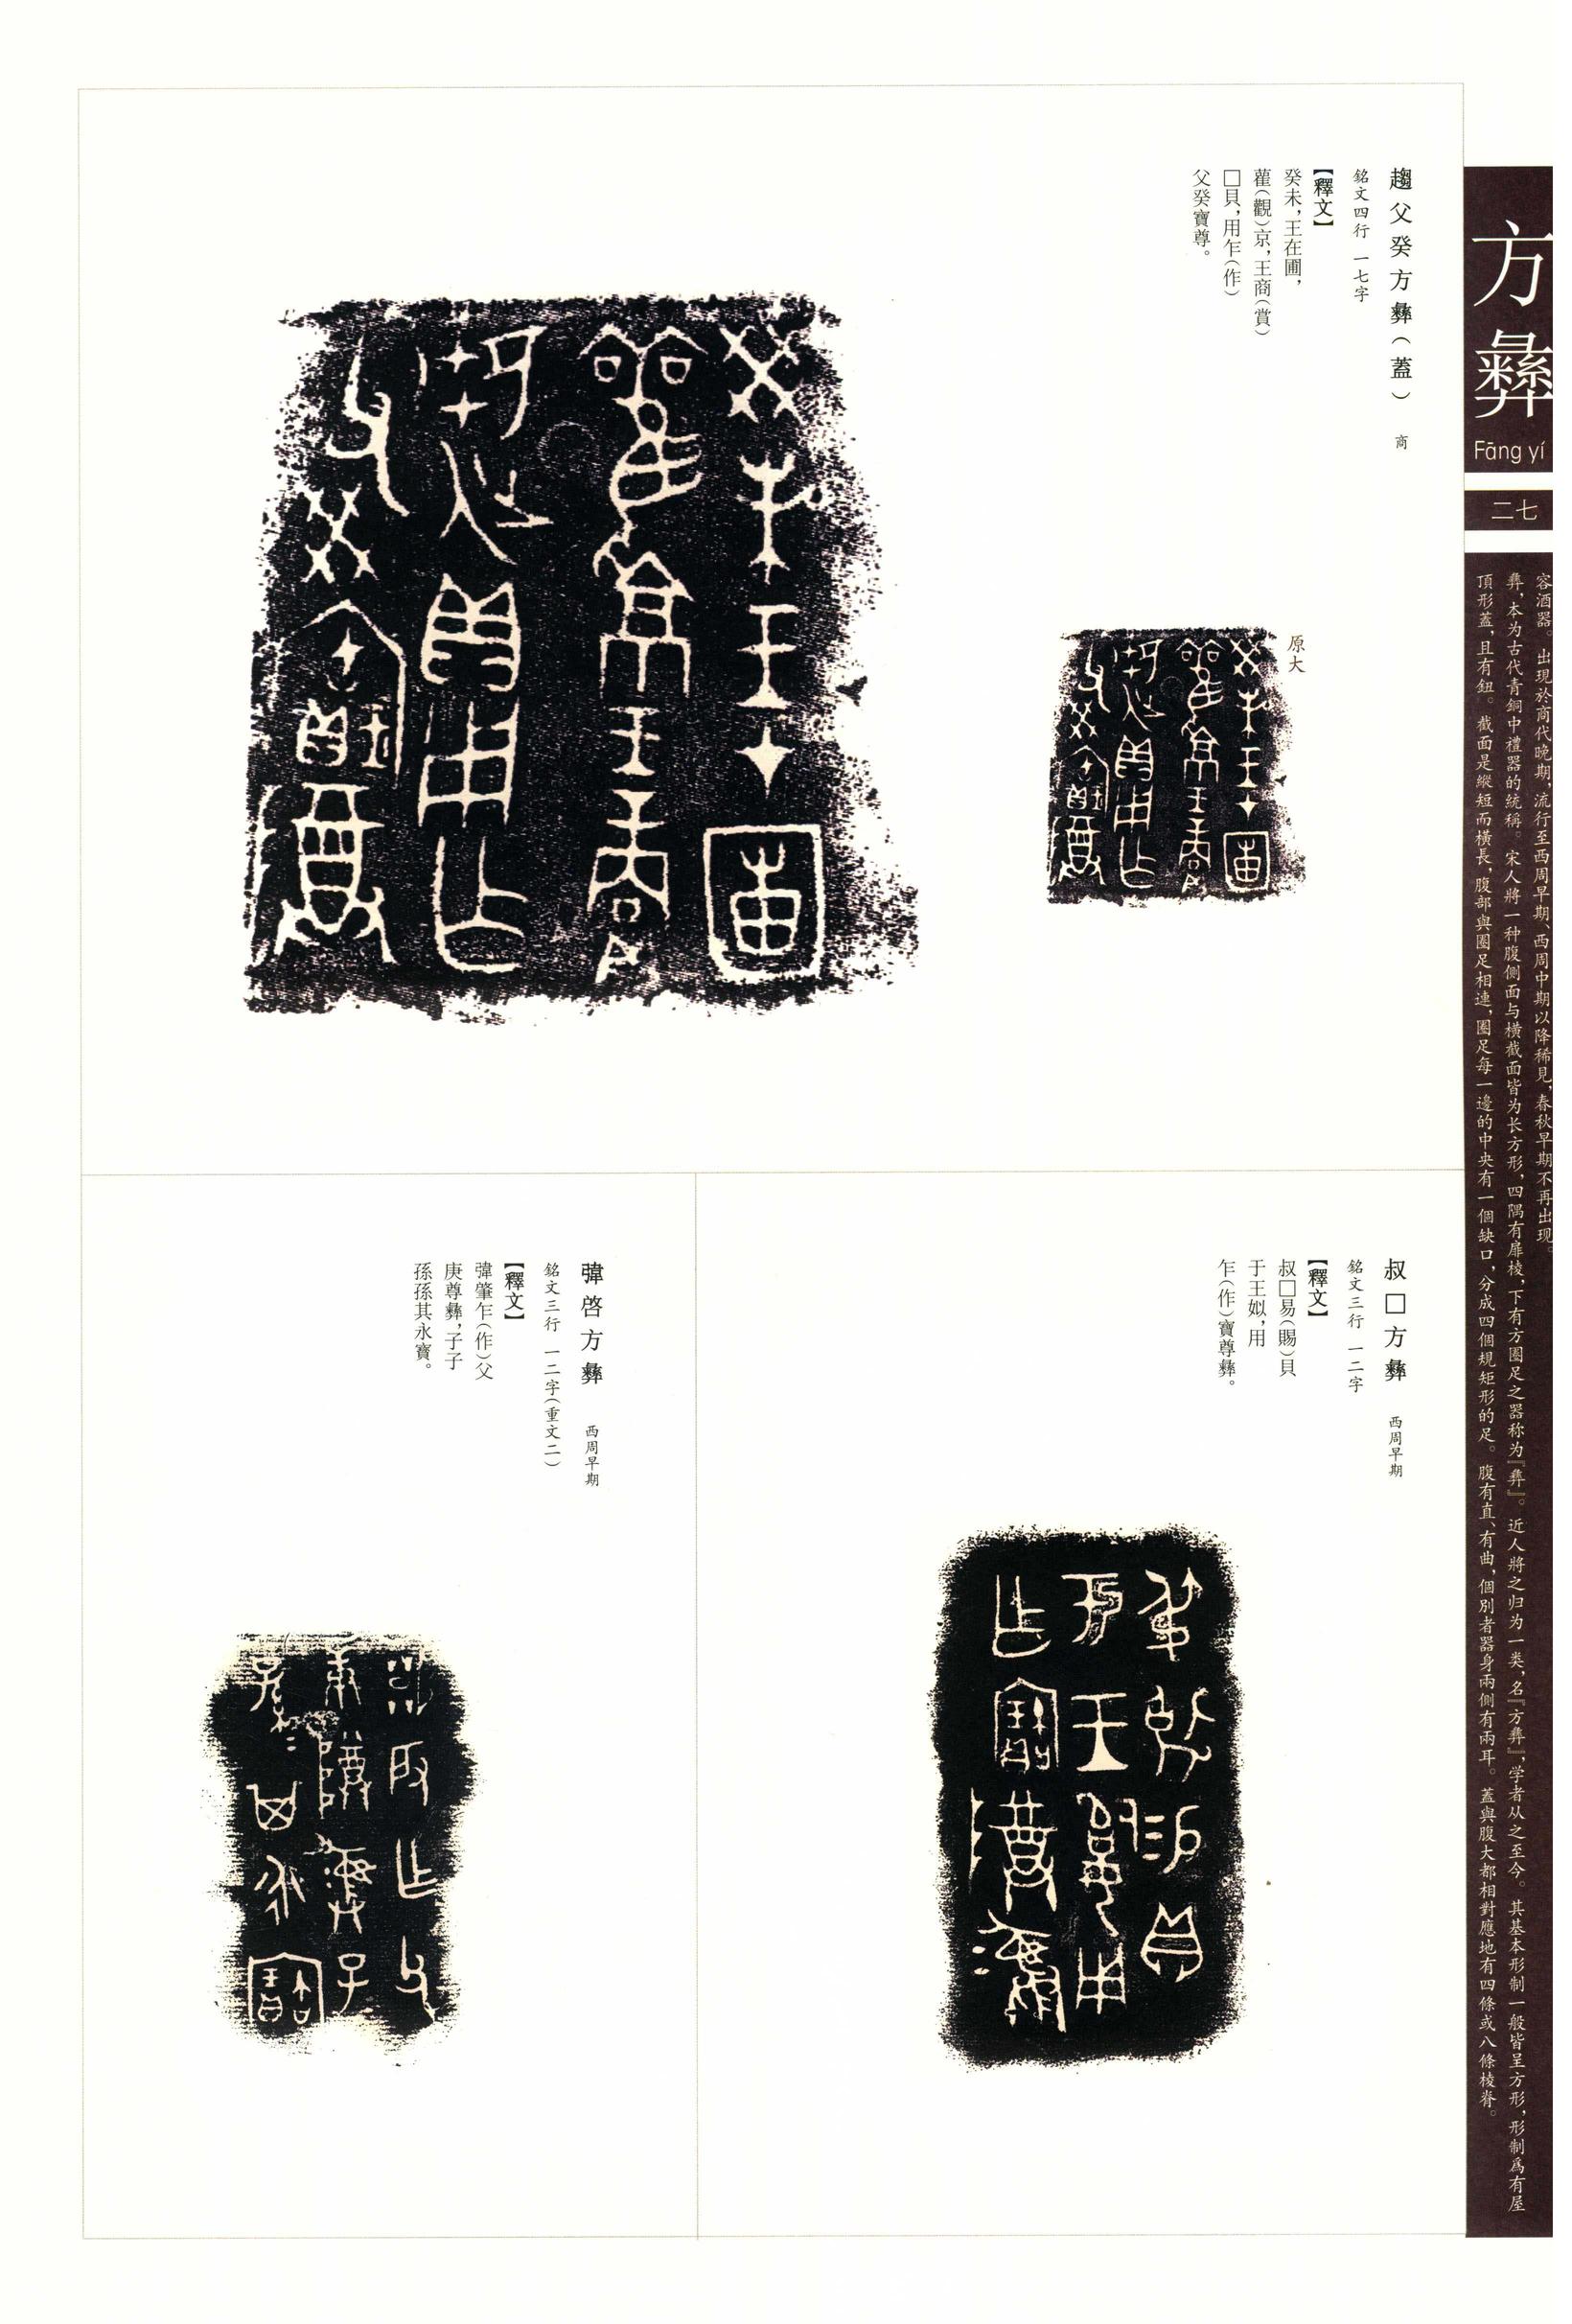 方彝
Fāng yí
二七
容酒器。出現於商代晚期,流行至西周早期、西周中期以降稀見,春秋早期不再出現。
彝,本为古代青銅中禮器的統稱。宋人將一种腹側面与橫截面皆为长方形,四隅有扉棱,下有方圈足之器称为『彝』。近人將之归为一类,名『方彝』,学者从之至今。其基本形制一般皆呈方形,形制爲有屋
頂形蓋,且有鈕。截面是縱短而橫長,腹部與圈足相連,圈足每一邊的中央有一個缺口,分成四個規矩形的足。腹有直、有曲,個別者器身兩側有兩耳。蓋與腹大都相對應地有四條或八條棱脊。
趨父癸方彝(蓋) 商
銘文四行 一七字
【釋文】
癸未,王在圃,
雚(觀)京,王商(賞)
□貝,用乍(作)
父癸寶尊。
原大
叔□方彝 西周早期
銘文三行 一二字
【釋文】
叔□易(賜)貝
于王姒,用
乍(作)寶尊彝。
弽啓方彝 西周早期
銘文三行 一二字(重文二)
【釋文】
肇乍(作)父
庚尊彝,子子
孫孫其永寶。